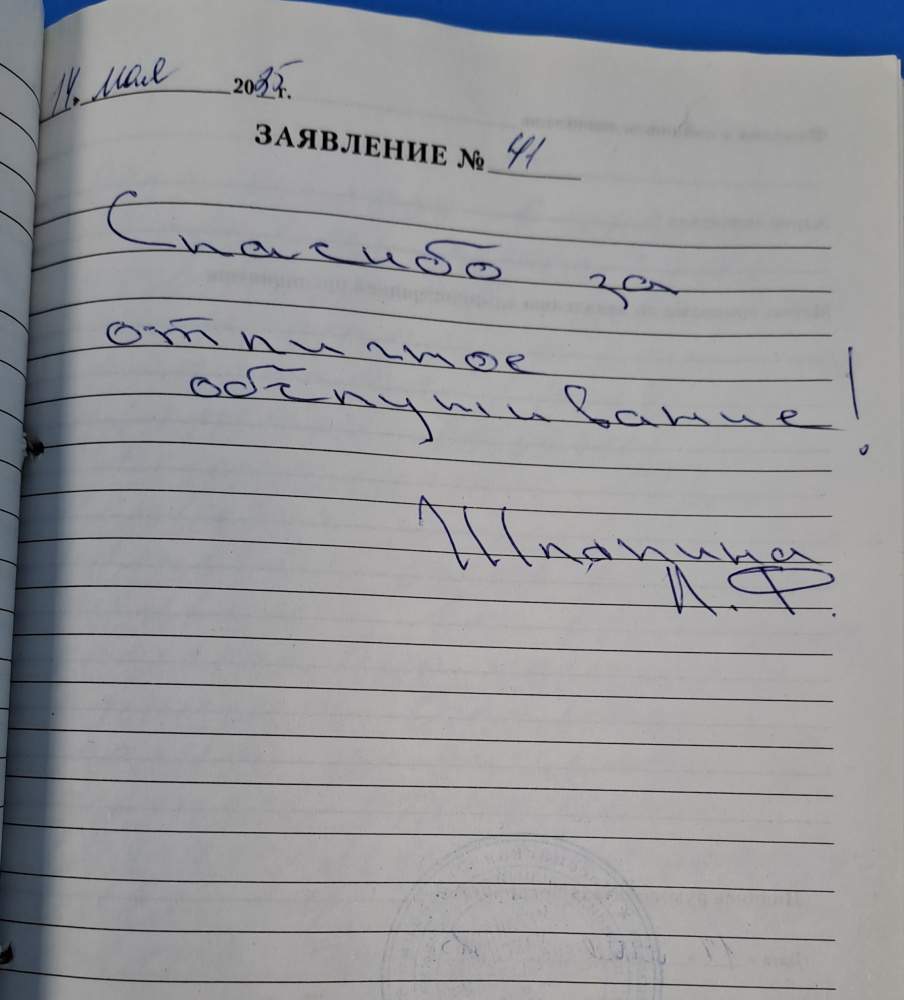 14. мая 2025г.
ЗАЯВЛЕНИЕ № 41
Спасибо за
отличное
обслуживание!
И.Ф.